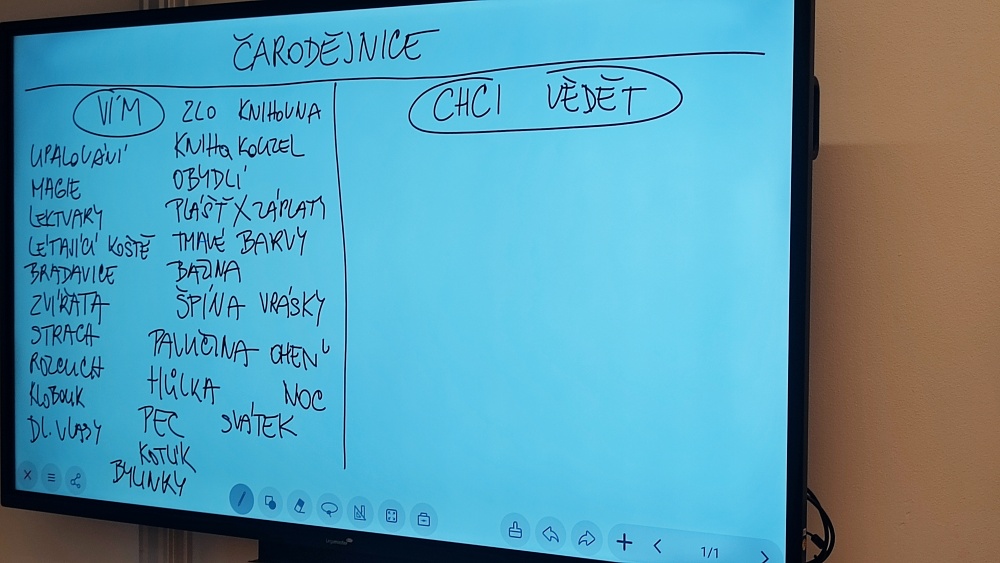 ČARODĚJNICE
VÍM
UPALOVÁNÍ
MAGIE
LEKTVARY
LÉTAJÍCÍ KOŠTĚ
BRADAVICE
ZVÍŘATA
STRACH
ROZRUCH
KLOBOUK
DL. VLASY
ZLO KNIHOVNA
KNIHA KOUZEL
OBYDLÍ
PLÁŠŤ X ZÁPLATY
TMAVÉ BARVY
BAŽINA
ŠPÍNA VRÁSKY
PAVUČINA OHEŇ
HŮLKA NOC
PEC SVÁTEK
KOTLÍK
BYLINKY
CHCI VĚDĚT
1/1